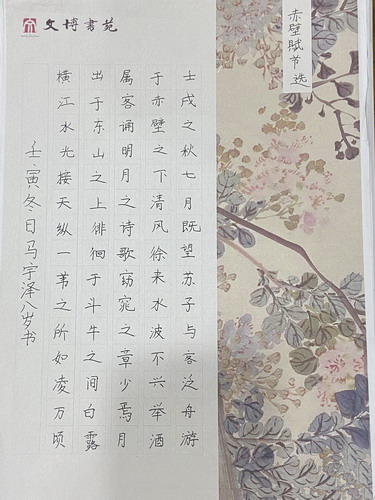 文博書苑
赤壁赋节选
壬戌之秋七月既望苏子与客泛舟游
于赤壁之下清风徐来水波不兴举酒
属客诵明月之诗歌窈窕之章少焉月
出于东山之上徘徊于斗牛之间白露
横江水光接天纵一苇之所如凌万顷
壬寅冬日马宇泽八岁书